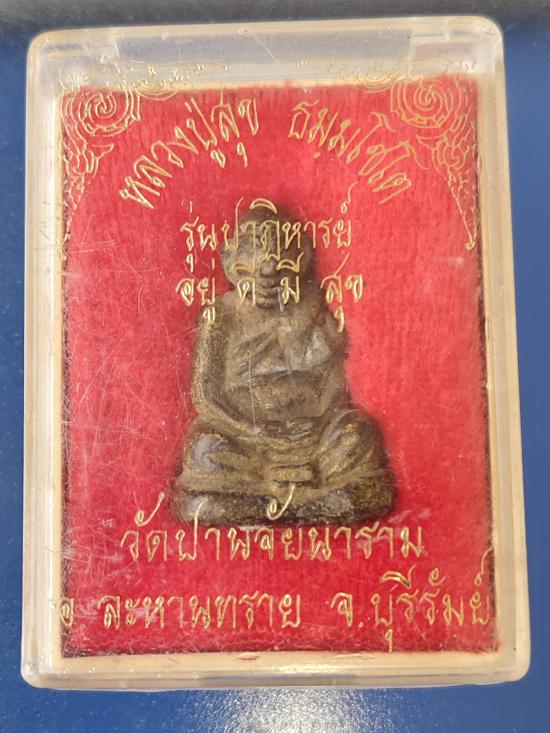 หลวงปู่สุข ธมฺมโชโต
รุ่นปาฏิหารย์
อยู่ ดี มี สุข
วัดป่าพจัยนาราม
อ ละหานทราย จ.บุรีรัมย์